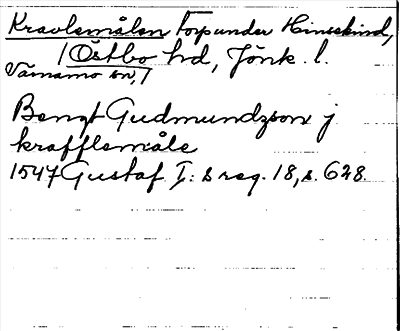 Kravlemålen Torp under Hinsekind,
/Östbo hd, Jönk. l.
Värnamo sn,/
Bengt Gudmundzson j
krafflemåle
1547 Gustaf I:s reg. 18, s. 628.